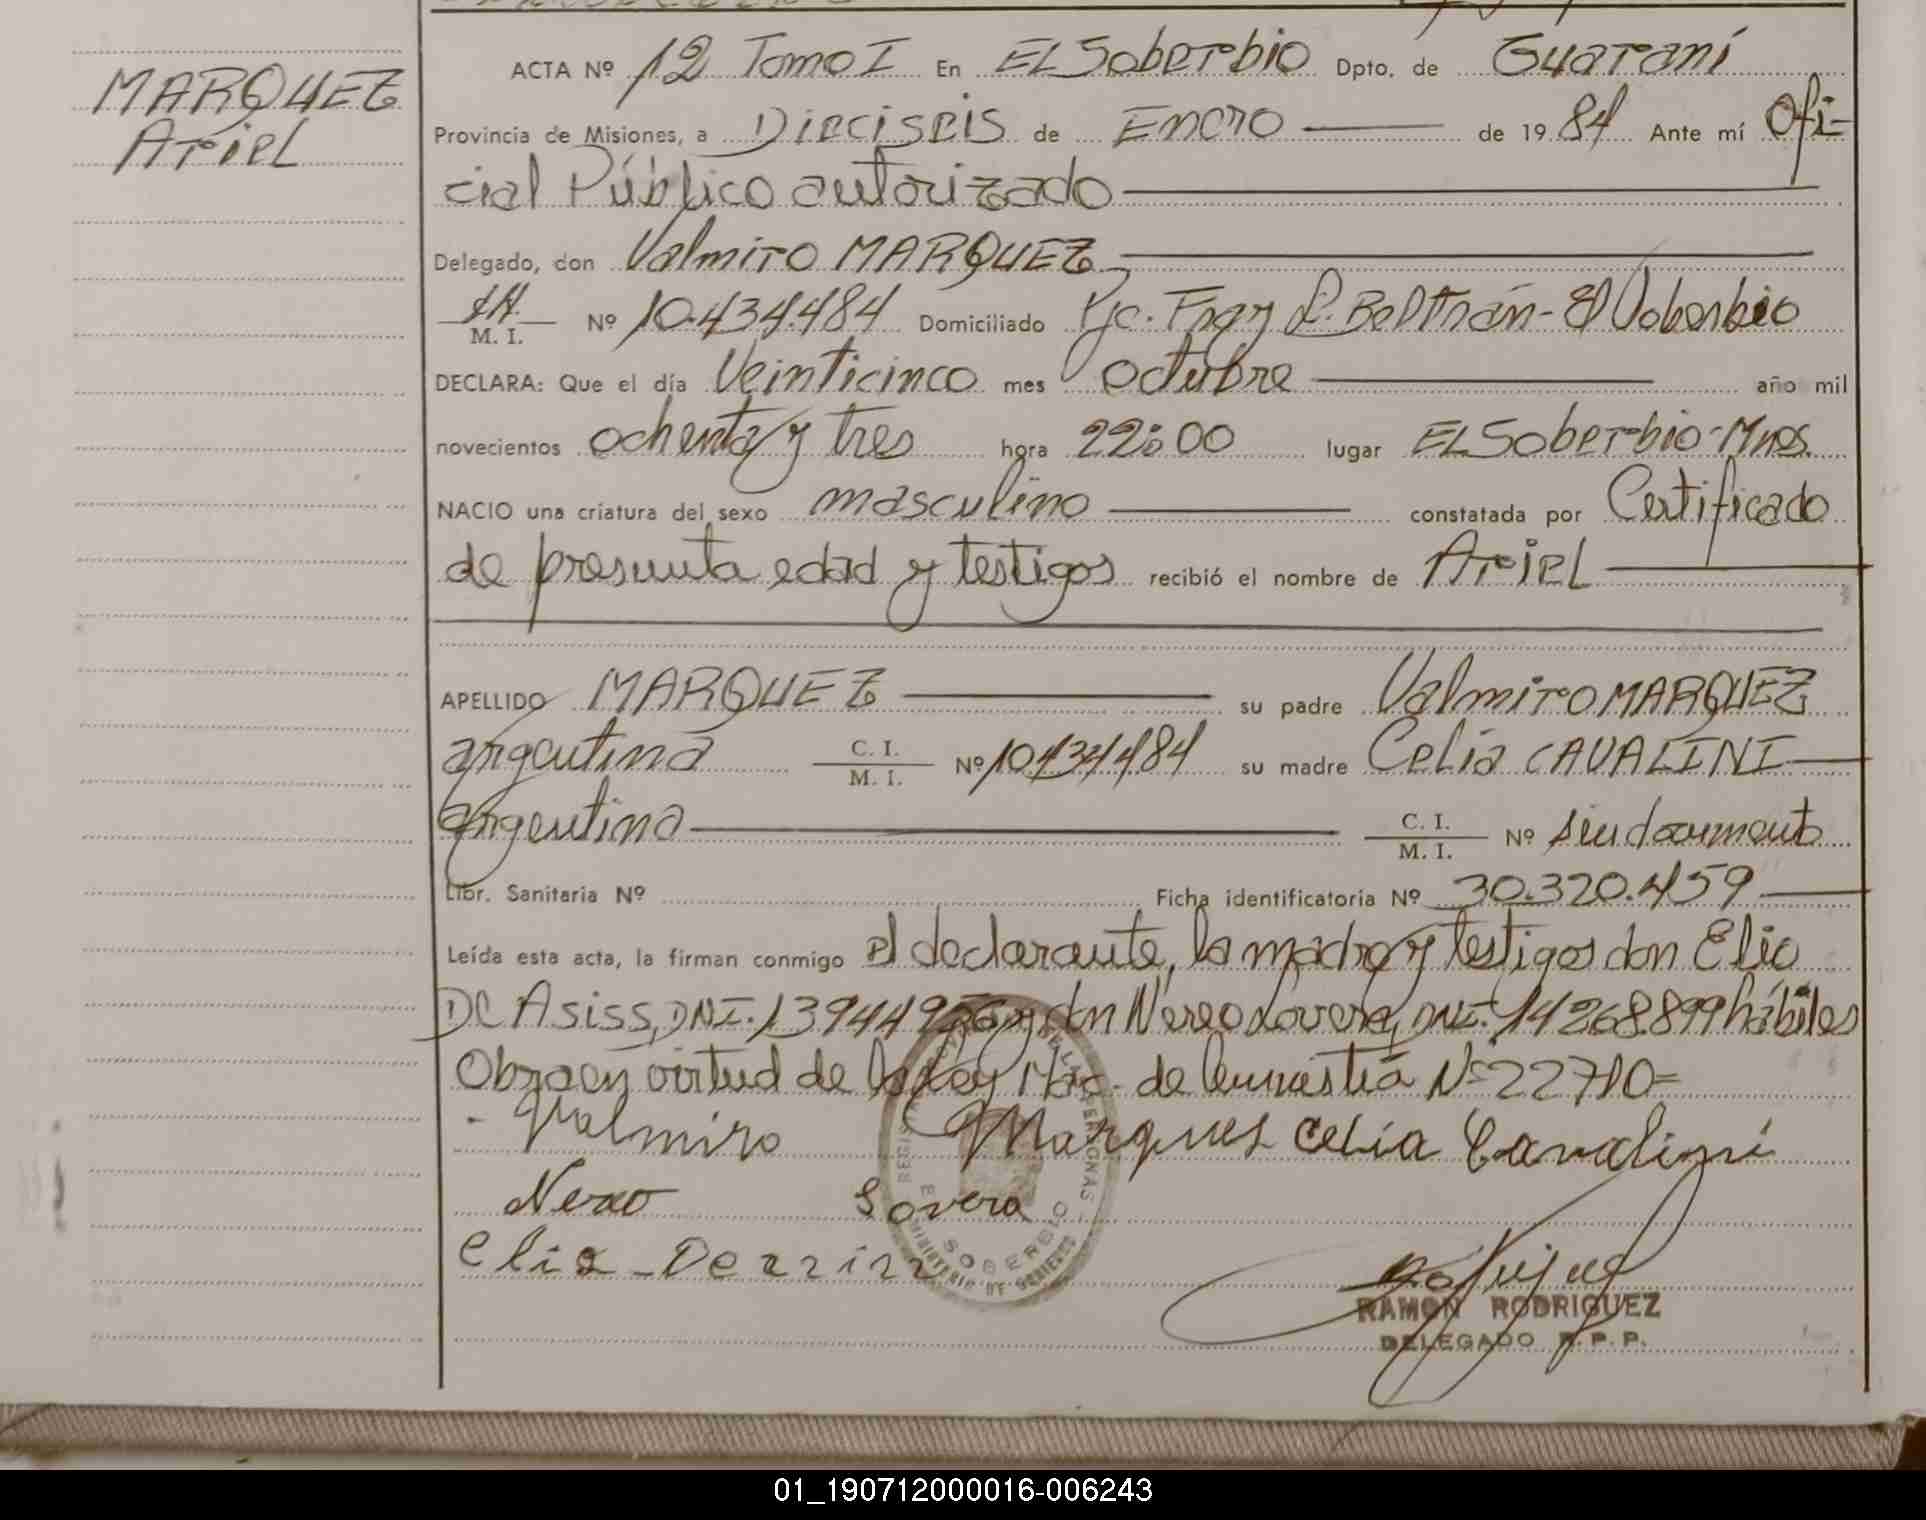 MARQUEZ
Ariel
ACTA Nº 12 Tomo I En EL Soberbio Dpto. de Guaraní
Provincia de Misiones, a Dieciseis de Enero de 1984 Ante mí Ofi-
cial Público autorizado
Delegado, don Valmiro MARQUEZ
M. I. Nº 10.434.484 Domiciliado Pje. Fray L. Beltrán - El Soberbio
DECLARA: Que el día Veinticinco mes octubre año mil
novecientos ochenta y tres hora 22:00 lugar EL Soberbio - Mnes.
NACIO una criatura del sexo masculino constatada por Certificado
de presunta edad y testigos recibió el nombre de Ariel
APELLIDO MARQUEZ su padre Valmiro MARQUEZ
argentina C. I. M. I. Nº 10434484 su madre Celia CAVALINI
argentina C. I. M. I. Nº sin documento
Libr. Sanitaria Nº Ficha identificatoria Nº 30.320.459
Leída esta acta, la firman conmigo el declarante, la madre y testigos don Elio
De Asiss, DNI. y don Nereo Lovera, DNI. 14268.899 hábiles
Obra en virtud de la Ley Nac. de Amnistía Nº 22710=
Valmiro Marques Celia Cavalini
Nereo Lovera
Elio
EL SOBERBIO
RAMON RODRIGUEZ
DELEGADO R.P.P.
01_190712000016-006243